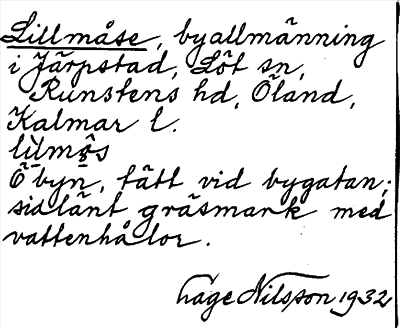 Lillmåse, byallmänning
i Järpstad, Löt sn,
Runstens hd, Öland,
Kalmar l.
lilmǫ̂s
Ö byn, tätt vid bygatan;
sidlänt gräsmark med
vattenhålor.
Åage Nilsson 1932